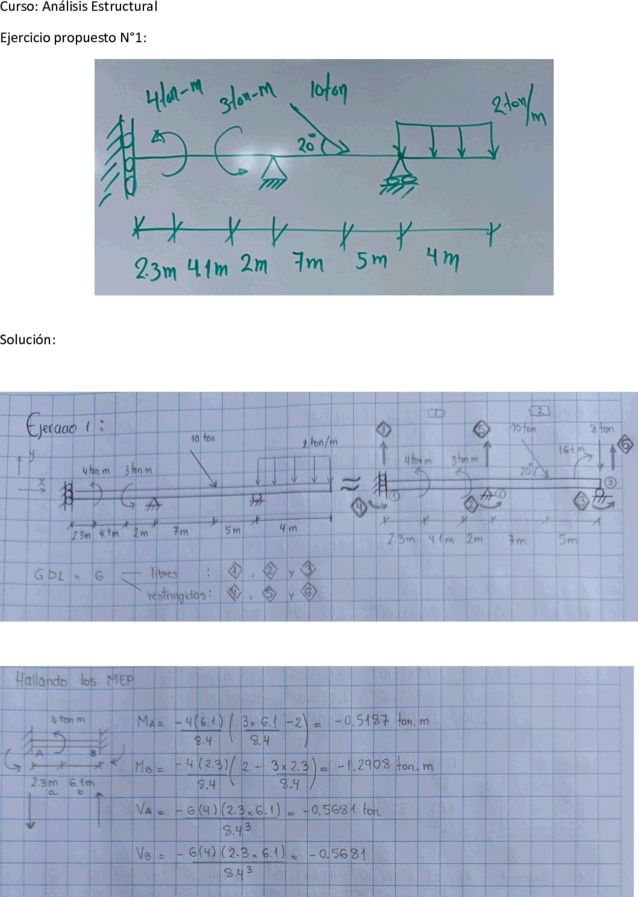 Curso: Análisis Estructural
Ejercicio propuesto N°1:
4ton-m 3ton-m 10ton 2ton/m
20°
2.3m 4.1m 2m 7m 5m 4m
Solución:
Ejercicio 1:
10 ton
2 ton/m
4 ton.m 3 ton.m
y
x
2.3m 4.1m 2m 7m 5m 4m
≈
1 2
1 5 10 ton 8 ton 6
4 ton m 3 ton m 20° 16 t.m
4 1 2 2 3 3
2.3m 4.1m 2m 7m 5m
GDL = 6 libres : 1, 2 y 3
restringidos: 4, 5 y 6
Hallando los MEP
4 ton m
A B
2.3m 6.1m
a b
MA = -4(6.1)/8.4 (3x6.1/8.4 - 2) = -0.5187 ton.m
MB = -4(2.3)/8.4 (2 - 3x2.3/8.4) = -1.2908 ton.m
VA = -6(4)(2.3x6.1)/8.4³ = -0.5681 ton
VB = -6(4)(2.3x6.1)/8.4³ = -0.5681